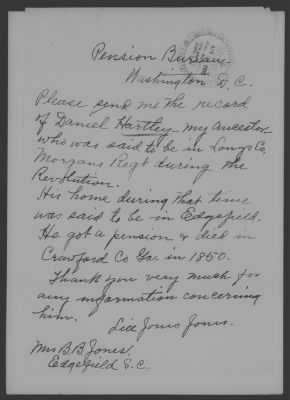 Pension Bureau
Washington D.C.
Please send me the record
of Daniel Hartley - my ancestor -
who was said to be in Longs Co,
Morgans Regt during the
Revolution.
His home during that time
was said to be in Edgefield.
He got a pension & died in
Crawford Co Ga. in 1850.
Thank you very much for
any information concerning
him.
Jones Jones.
Mrs B.B. Jones.
Edgefield S.C.